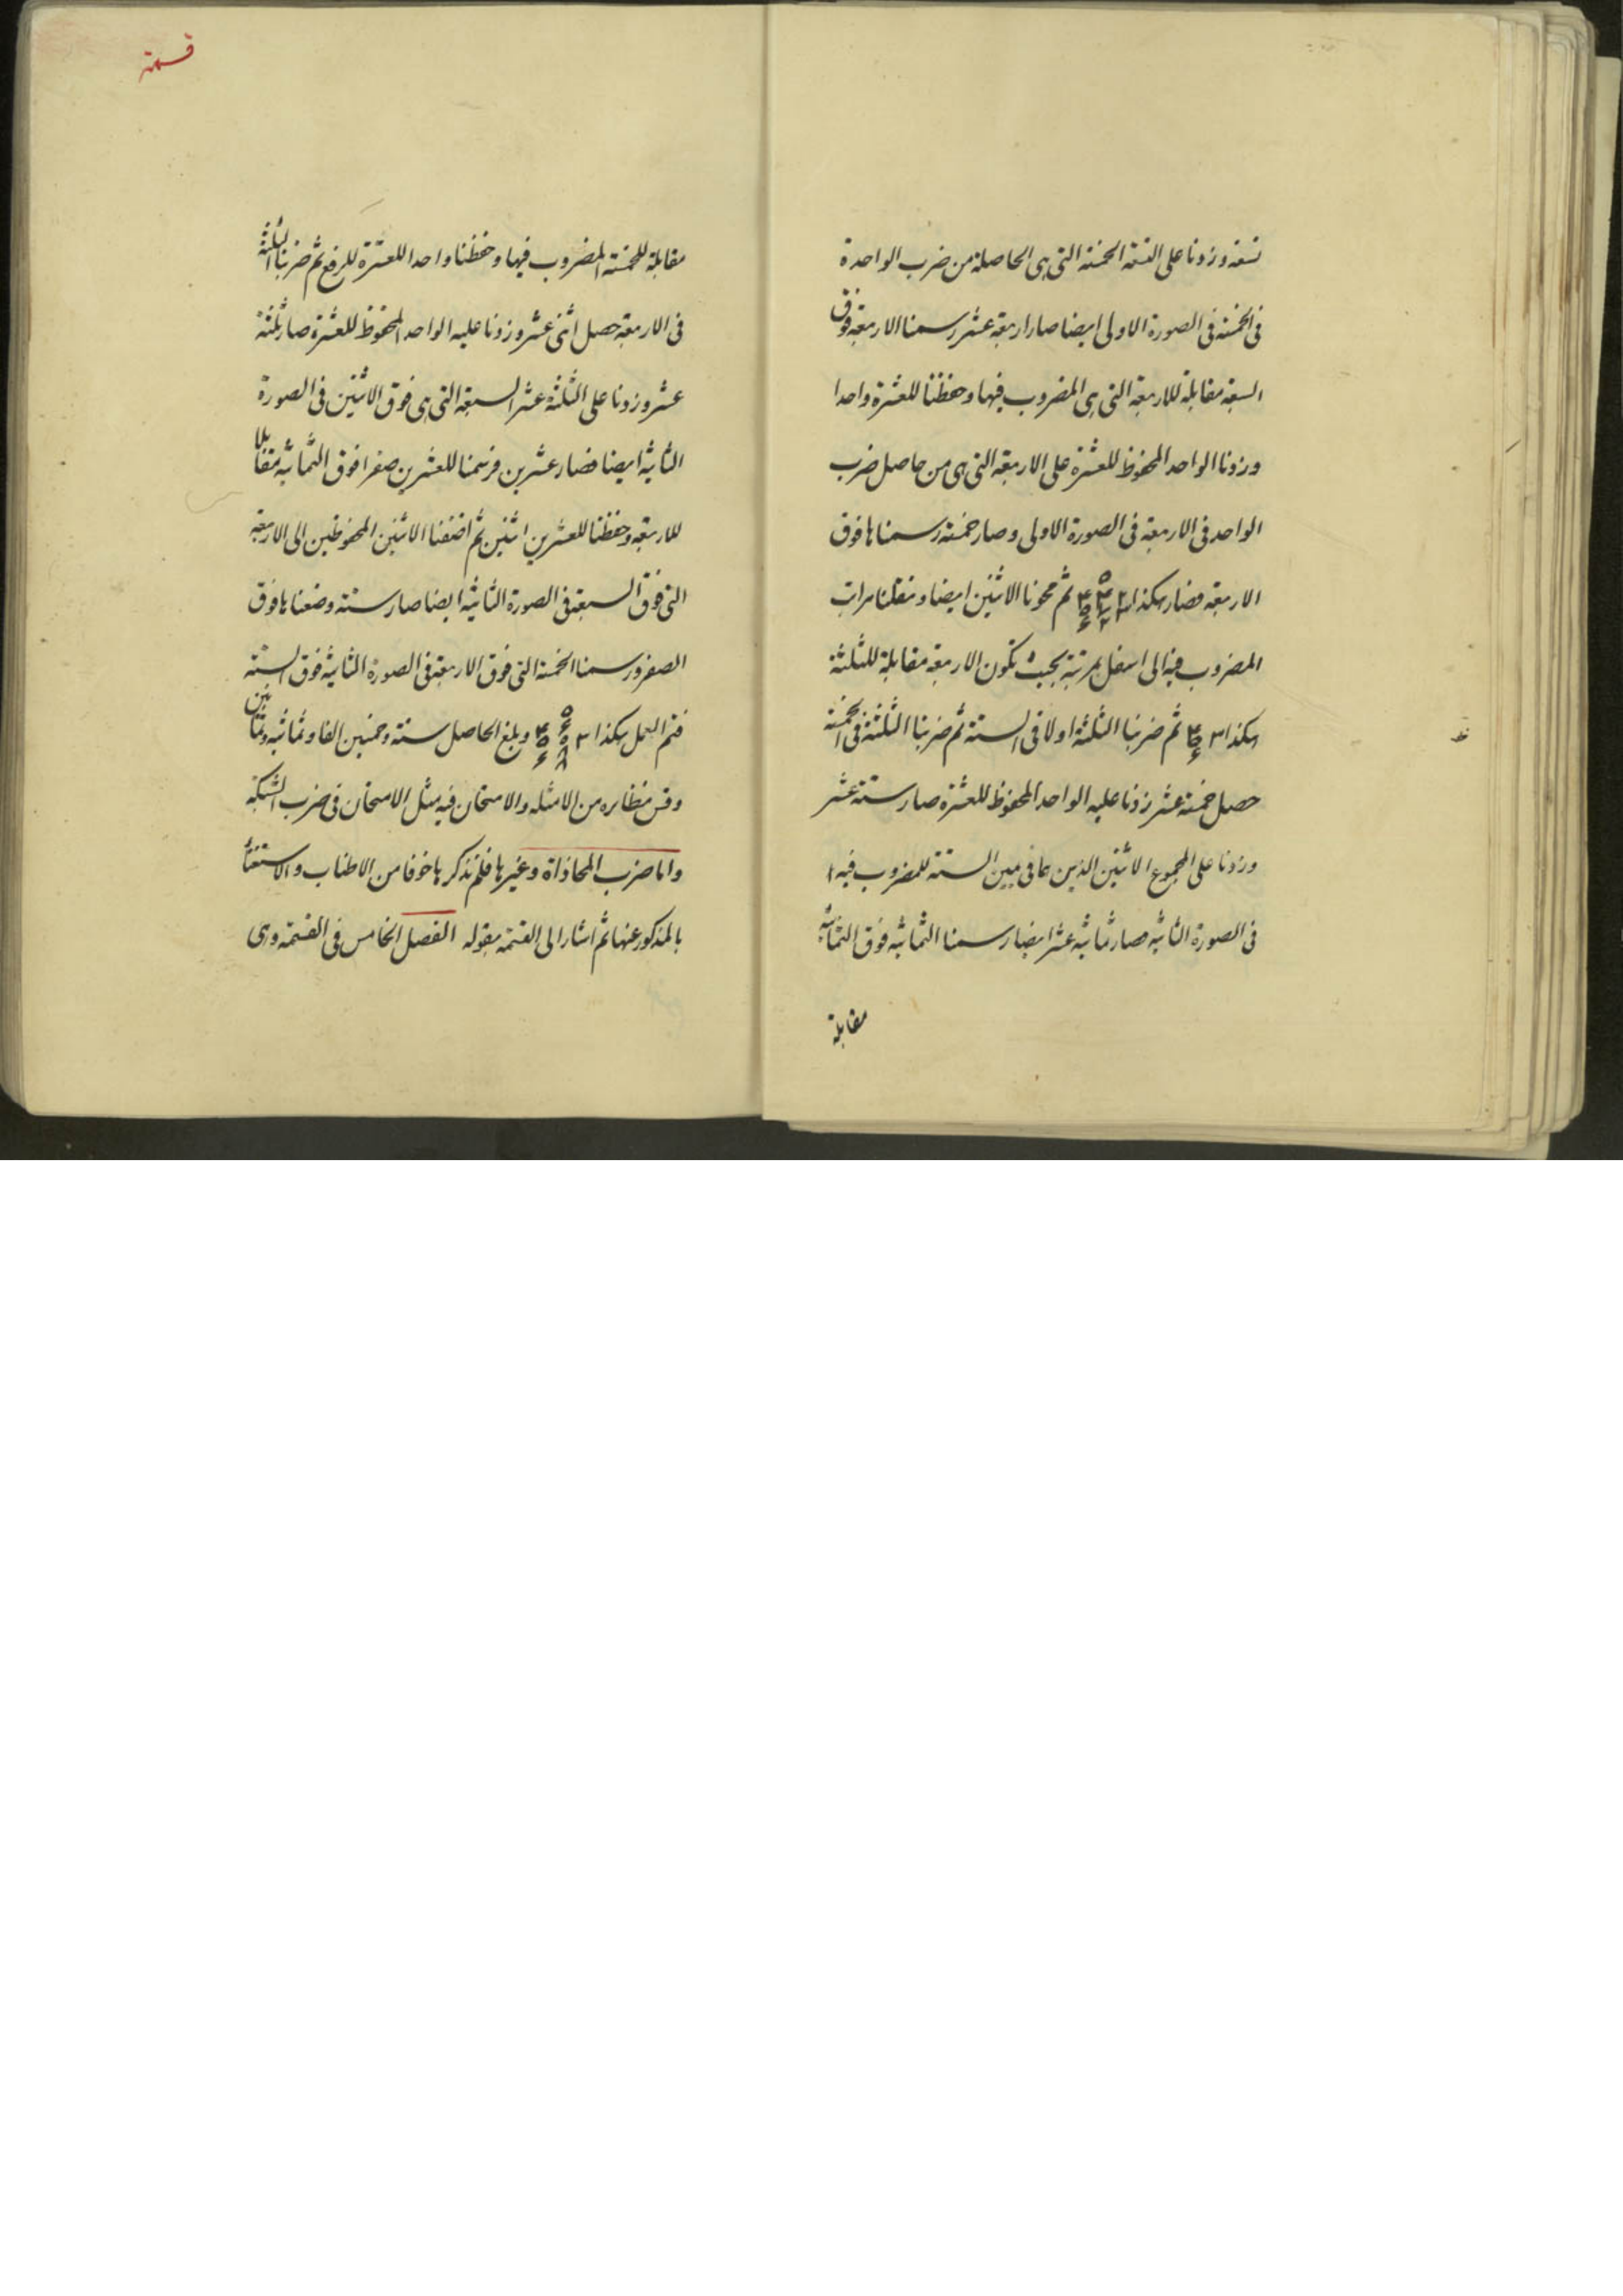 تسعة وزدنا على التسعة الخمسة التى هى الحاصلة من ضرب الواحدة
فى الخمسة فى الصورة الاولى ايضا صار اربعة عشر رسمنا الاربعة فوق
السبعة مقابلة للاربعة التى هى المضروب فيها وحفظنا للعشرة واحدا
وزدنا الواحد المحفوظ للعشرة على الاربعة التى هى من حاصل ضرب
الواحد فى الاربعة فى الصورة الاولى وصار خمسة رسمناها فوق
الاربعة فصار هكذا ثم محونا الاثنين ايضا ونقلنا مراتب
المضروب فيه الى اسفل بمرتبة بحيث تكون الاربعة مقابلة للثلثة
هكذا ثم ضربنا الثلثة اولا فى الستة ثم ضربنا الثلثة فى الخمسة
حصل خمسة عشر زدنا عليه الواحد المحفوظ للعشرة صار ستة عشر
وزدنا على المجموع الاثنين الذين هما فى يمين الستة للمضروب فيها
فى الصورة الثانية فصار ثمانية عشر ايضا رسمنا الثمانية فوق الثمانية
مقابلة
قسمة
مقابلة للخمسة المضروب فيها وحفظنا واحدا للعشرة للرفع ثم ضربنا الثلثة
فى الاربعة حصل اثنى عشر وزدنا عليه الواحد المحفوظ للعشرة صار ثلثة
عشر وزدنا على الثلثة عشر السبعة التى هى فوق الاثنين فى الصورة
الثانية ايضا فصار عشرين فرسمنا للعشرين صفرا فوق الثمانية مقابلا
للاربعة وحفظنا للعشرين اثنين ثم اضفنا الاثنين المحفوظين الى الاربعة
التى فوق السبعة فى الصورة الثانية ايضا صار ستة وضعناها فوق
الصفر ورسمنا الخمسة التى فوق الاربعة فى الصورة الثانية فوق الستة
فتم العمل هكذا وبلغ الحاصل ستة وخمسين الفا وثمانية وثمانين
وقس نظايره من الامثله والامتحان فيه مثل الامتحان فى ضرب الشبكة
واما ضرب المحاذاة وغيرها فلم نذكرها خوفا من الاطناب والاستغناء
بالمذكور عنها ثم اشار الى القسمة بقوله الفصل الخامس فى القسمة وهى